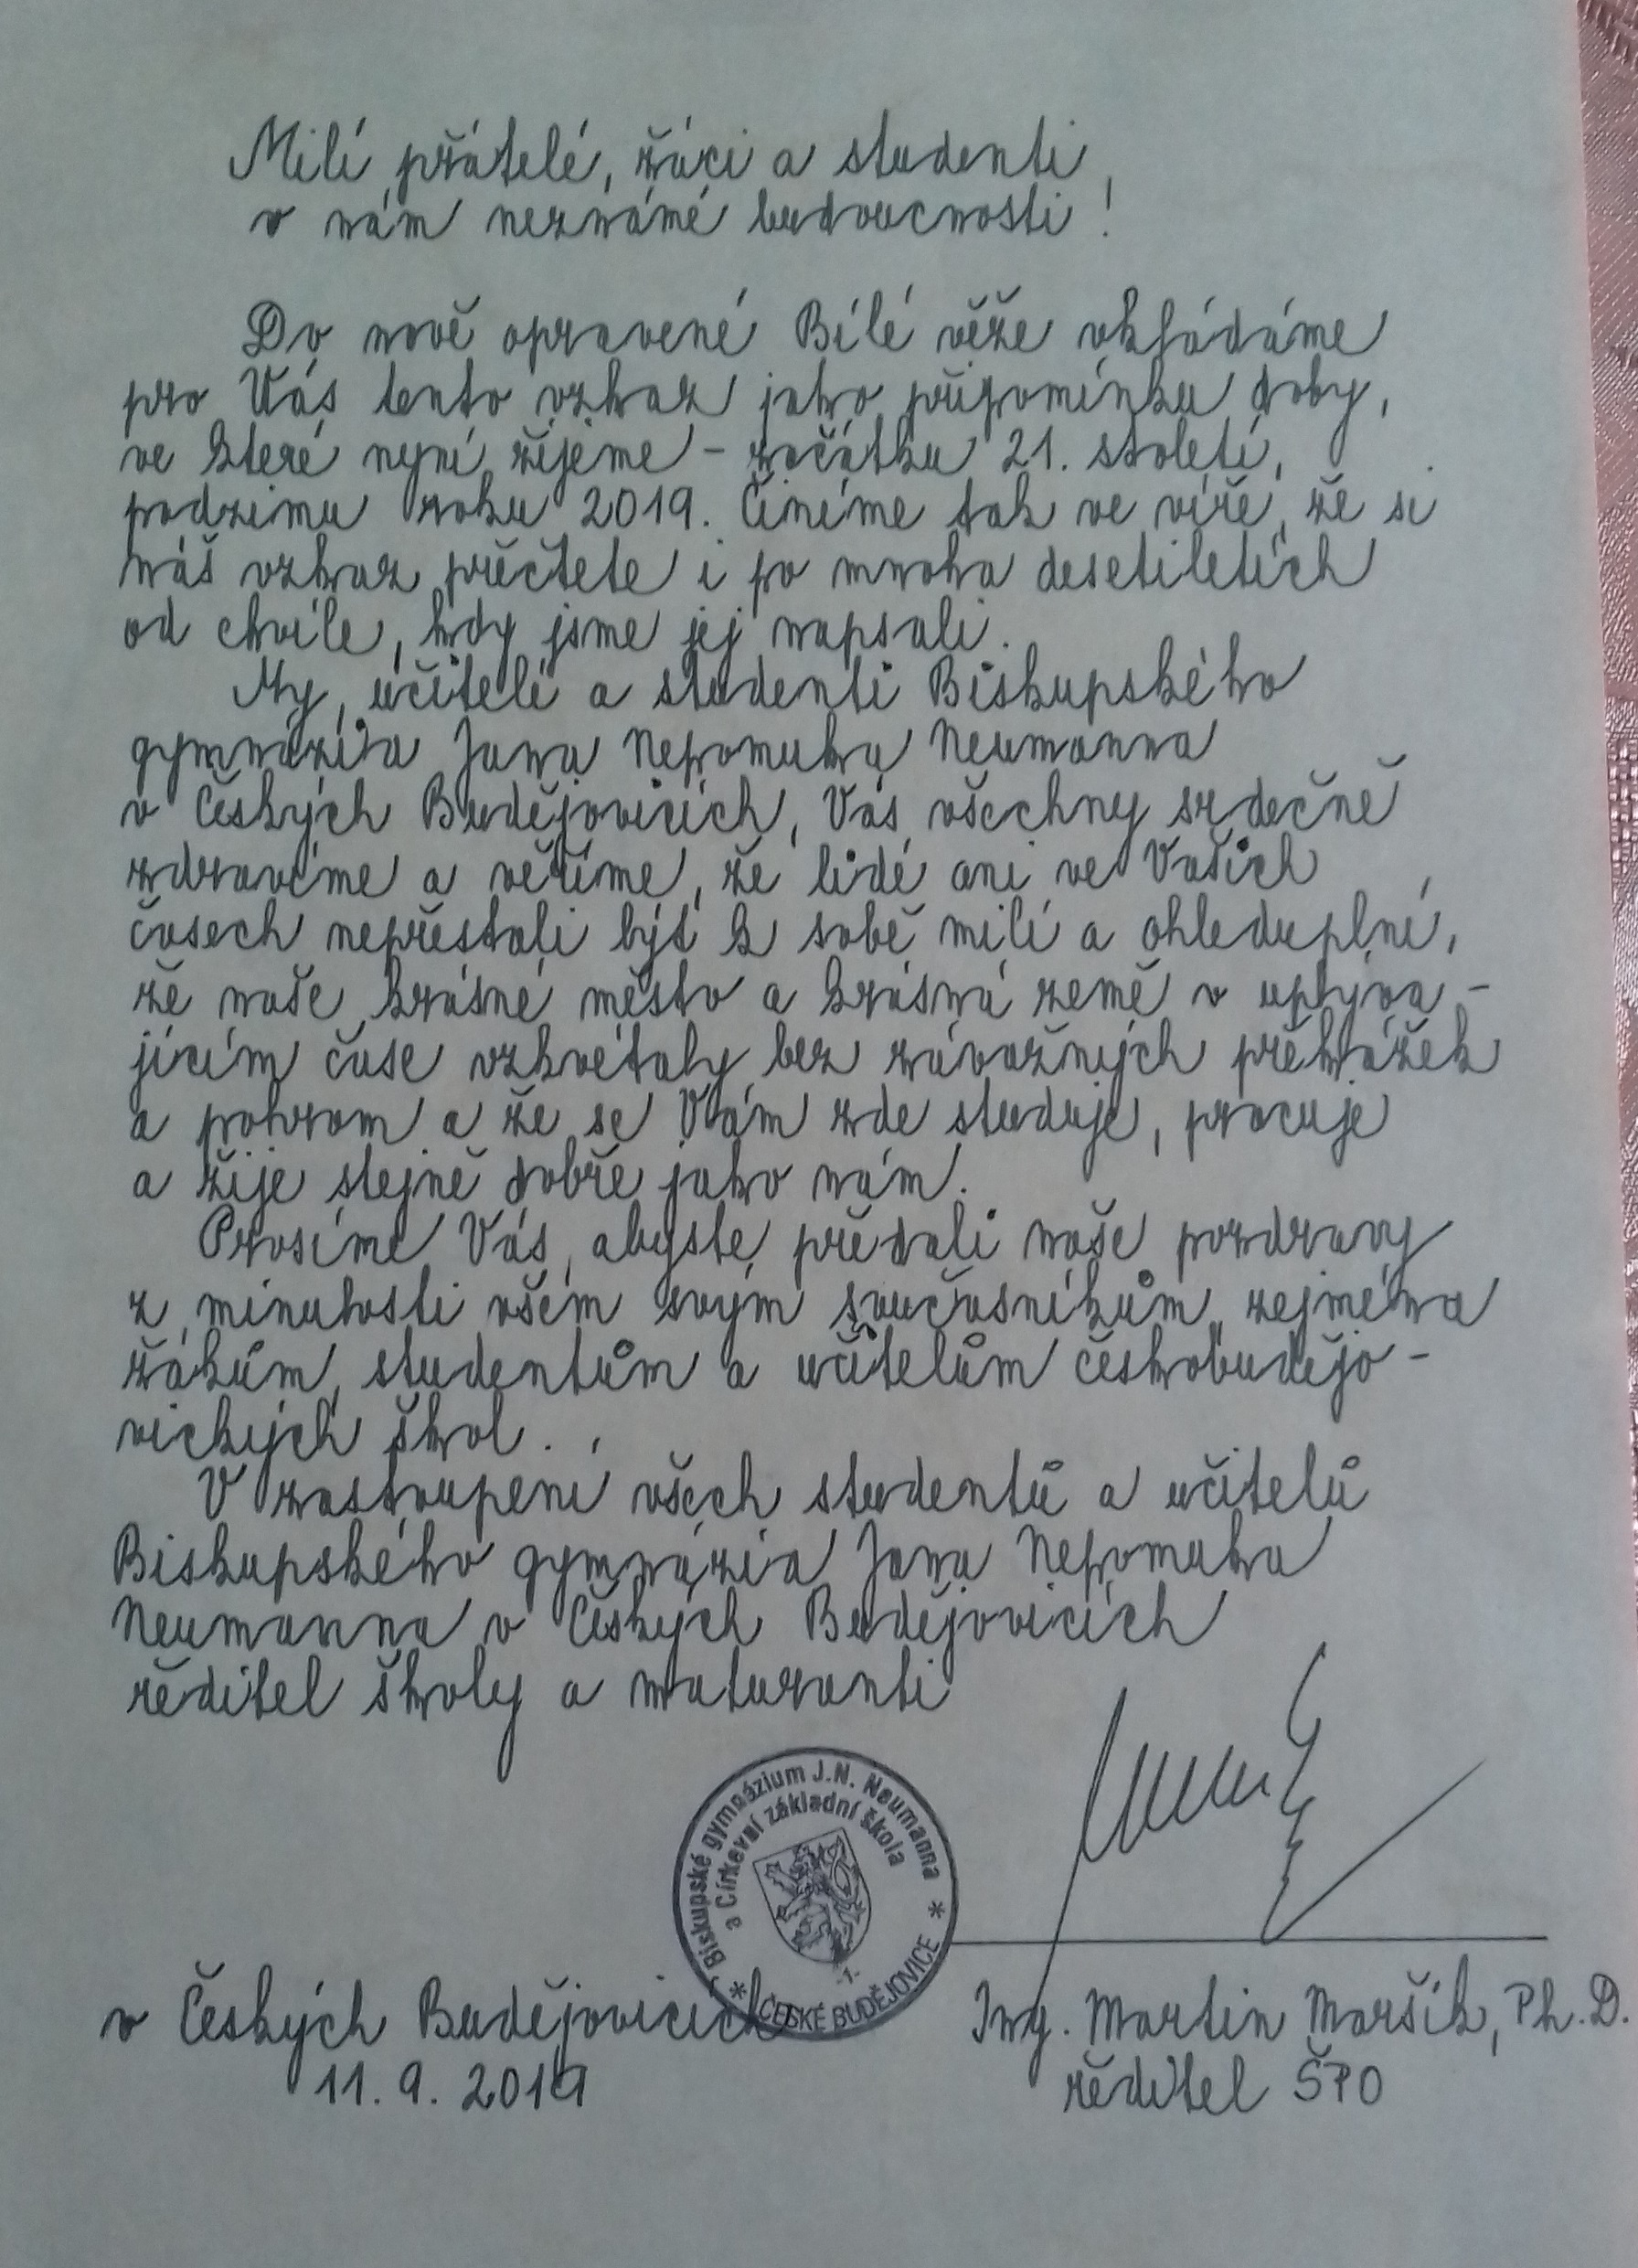 Milí přátelé, žáci a studenti
v nám neznámé budoucnosti!
Do nově opravené Bílé věže vkládáme
pro Vás tento vzkaz jako připomínku doby,
ve které nyní žijeme – začátku 21. století,
podzimu roku 2019. Činíme tak ve víře, že si
náš vzkaz přečtete i po mnoha desetiletích
od chvíle, kdy jsme jej napsali.
My, učitelé a studenti Biskupského
gymnázia Jana Nepomuka Neumanna
v Českých Budějovicích, Vás všechny srdečně
zdravíme a věříme, že lidé ani ve Vašich
časech nepřestali být k sobě milí a ohleduplní,
že naše krásné město a krásná země v uplýva-
jícím čase vzkvétaly bez závažných překážek
a pohrom a že se Vám zde studuje, pracuje
a žije stejně dobře jako nám.
Prosíme Vás, abyste předali naše pozdravy
z minulosti všem svým současníkům, zejména
žákům, studentům a učitelům českobudějo-
vických škol.
V zastoupení všech studentů a učitelů
Biskupského gymnázia Jana Nepomuka
Neumanna v Českých Budějovicích
ředitel školy a maturanti
* Biskupské gymnázium J.N. Neumanna *
a Církevní základní škola
-1-
ČESKÉ BUDĚJOVICE
v Českých Budějovicích
11. 9. 2019
Ing. Martin Maršík, Ph.D.
ředitel ŠPO